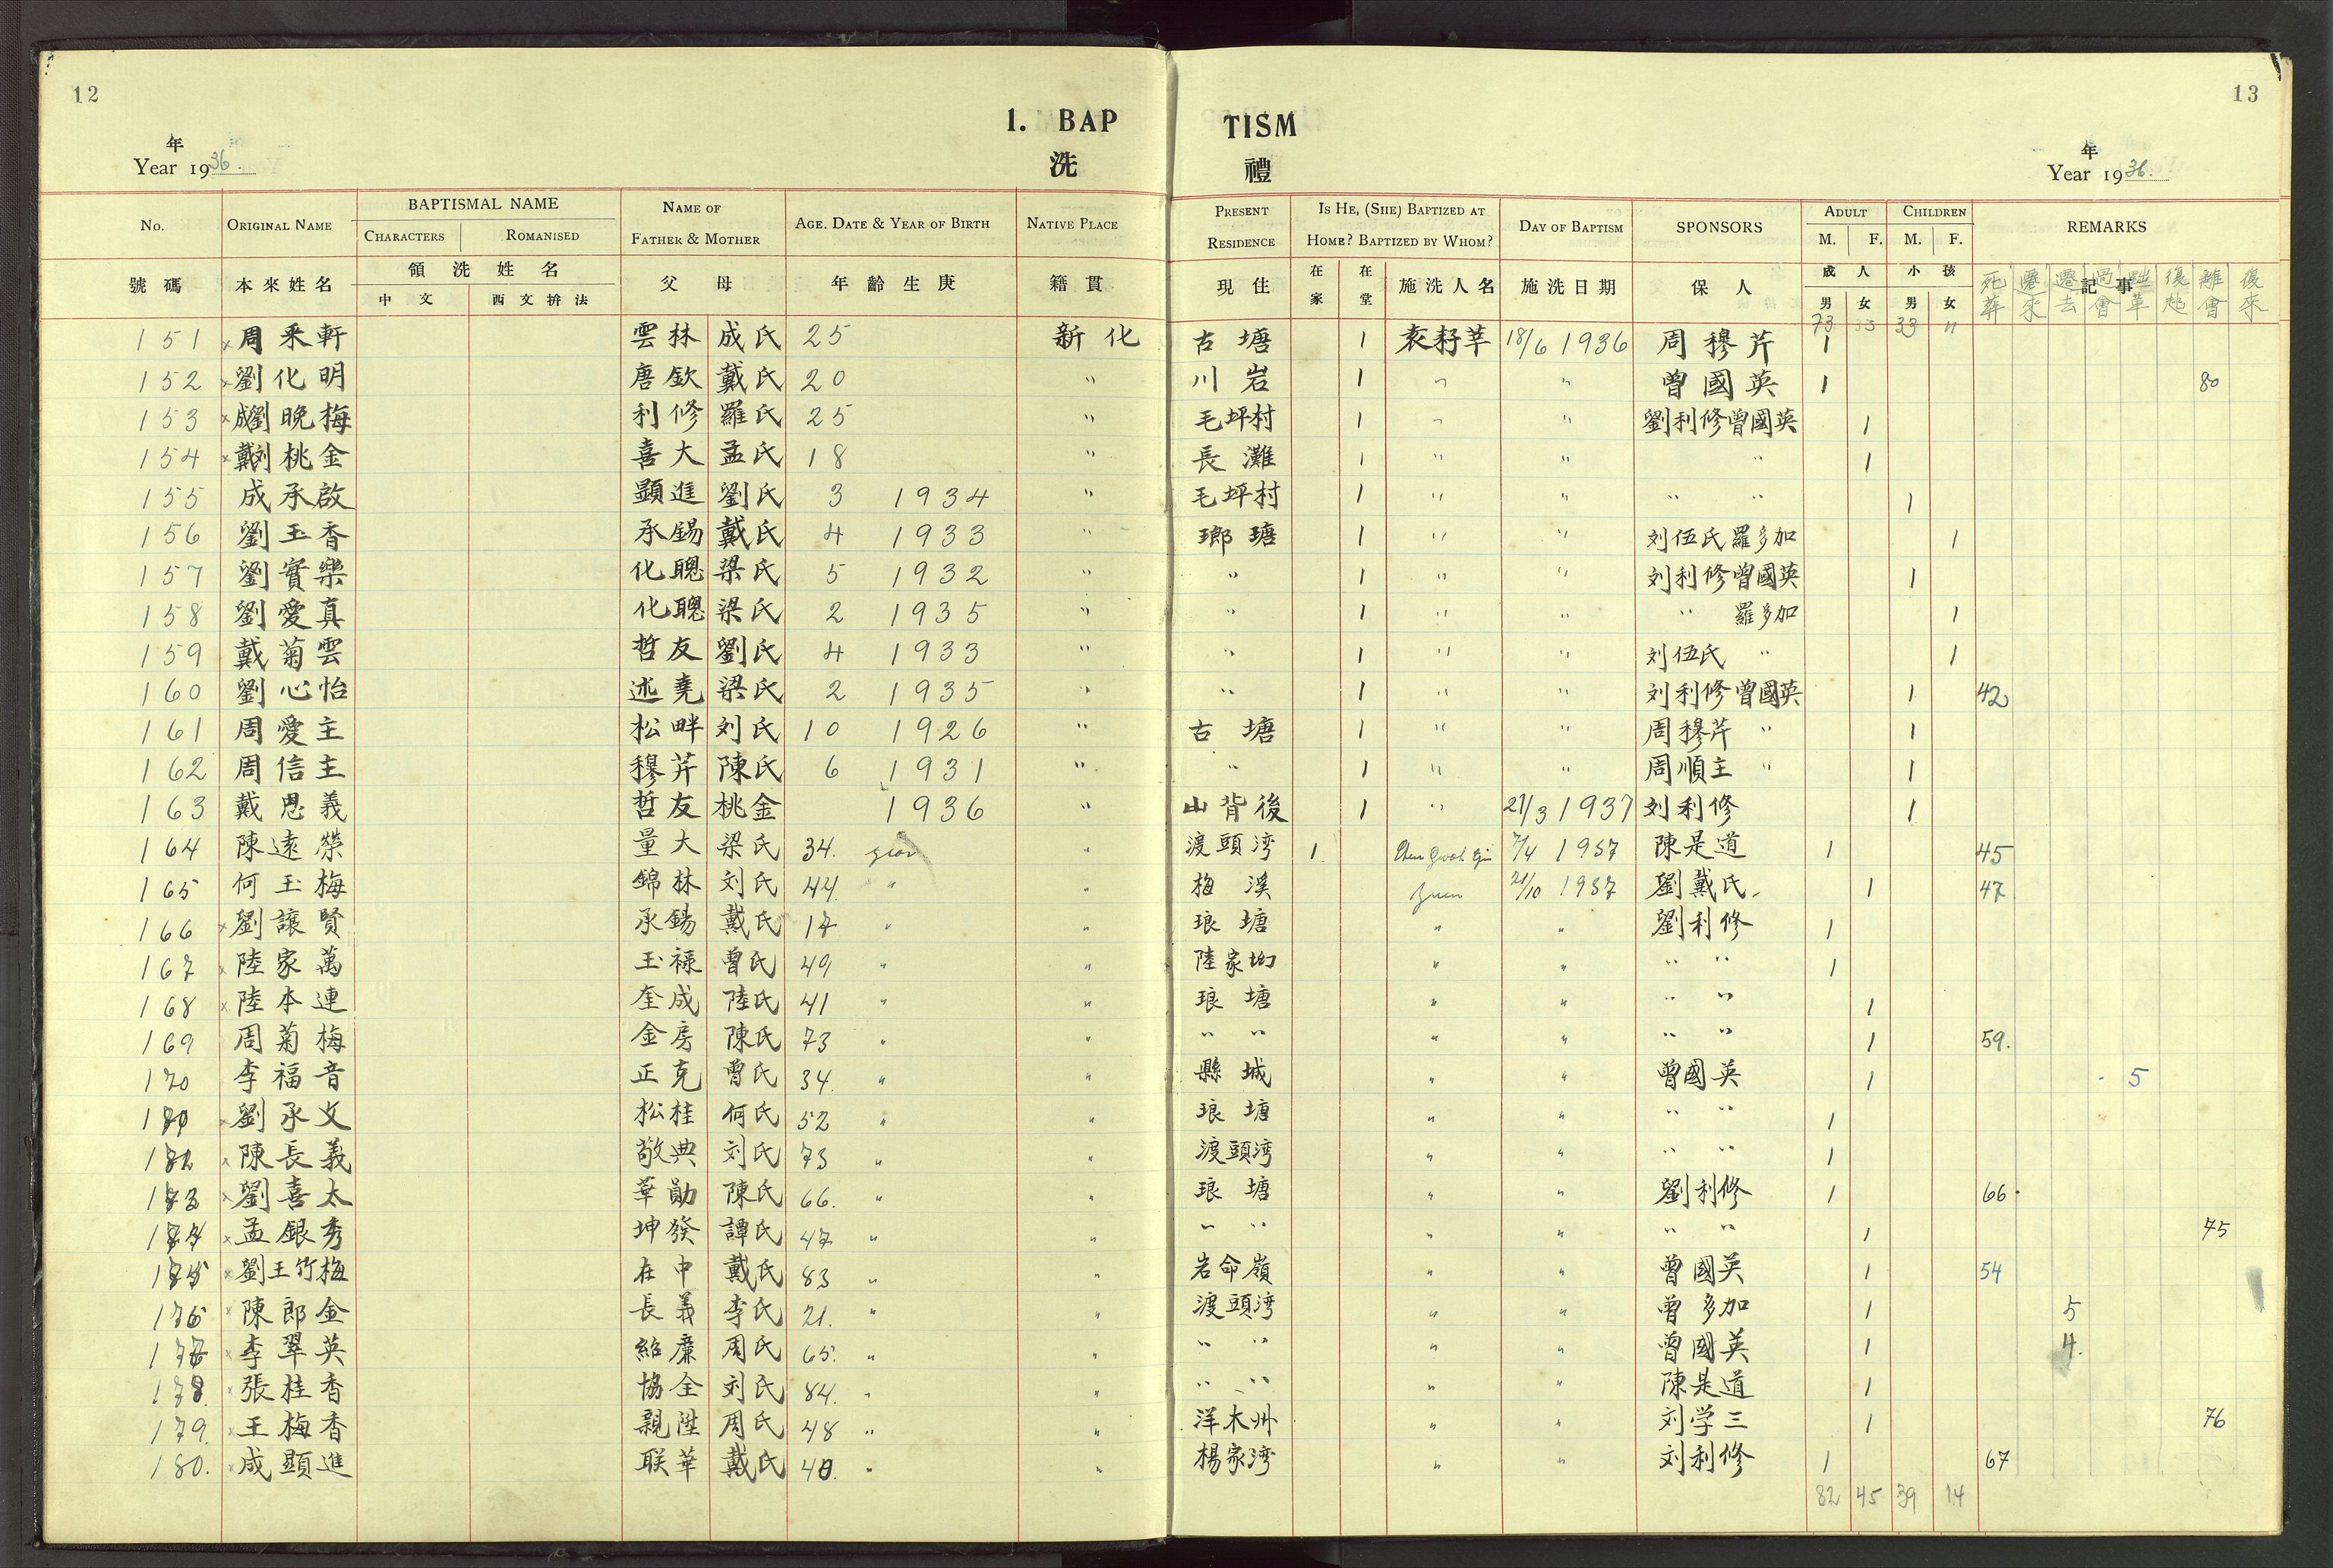 12
13
1. BAP
TISM
年
Year 1936.
洗
禮
年
Year 1936.
No. ORIGINAL NAME BAPTISMAL NAME NAME OF FATHER & MOTHER AGE. DATE & YEAR OF BIRTH NATIVE PLACE PRESENT RESIDENCE IS HE, (SHE) BAPTIZED AT HOME? BAPTIZED BY WHOM? DAY OF BAPTISM SPONSORS ADULT CHILDREN REMARKS
CHARACTERS ROMANISED M. F. M. F.
號碼 本來姓名 領洗姓名 父母 年齡生庚 籍貫 現住 在家 在堂 施洗人名 施洗日期 保人 成人 小孩 記事
中文 西文拚法 男 女 男 女 死葬 遷來 遷去 過會 黜革 復起 離會 復來
73 33 33 11
151 x 周釆軒 雲林 成氏 25 新化 古塘 1 袁籽莘 18/6 1936 周穆芹 1
152 x 劉化明 唐欽 戴氏 20 " 川岩 1 " " 曾國英 1 80
153 x 成劉晚梅 利修 羅氏 25 " 毛坪村 1 " " 劉利修曾國英 1
154 x 戴刘桃金 喜大 孟氏 18 " 長灘 1 " " " 1
155 成承啟 顯進 劉氏 3 1934 " 毛坪村 1 " " " " 1
156 劉玉香 承錫 戴氏 4 1933 " 瑯瑭 1 " " 刘伍氏羅多加 1
157 劉實樂 化聰 梁氏 5 1932 " " 1 " " 刘利修曾國英 1
158 劉愛真 化聰 梁氏 2 1935 " " 1 " " " 羅多加 1
159 戴菊雲 哲友 劉氏 4 1933 " " 1 " " 刘伍氏 " 1
160 劉心怡 述堯 梁氏 2 1935 " " 1 " " 刘利修曾國英 1 42
161 周愛主 松畔 刘氏 10 1926 " 古塘 1 " " 周穆芹 " 1
162 周信主 穆芹 陳氏 6 1931 " " 1 " " 周順主 " 1
163 戴恩義 哲友 桃金 1936 " 山背後 1 " 27/3 1937 刘利修 1
164 陳遠榮 量大 梁氏 34. year " 渡頭湾 1 7/4 1937 陳是道 1 45
165 何玉梅 錦林 刘氏 44. " " 梅溪 21/10 1937 劉戴氏 1 47
166 x 劉讓賢 承錫 戴氏 17 " " 琅塘 " " 劉利修 1
167 x 陸家萬 玉禄 曾氏 49 " " 陸家坳 " " " " 1
168 x 陸本連 奎成 陸氏 41 " " 琅塘 " " " " 1
169 周菊梅 金房 陳氏 73 " " " " " " " " 1 59.
170 李福音 正克 曾氏 34. " " 縣城 " " 曾國英 1 5
171 x 劉承文 松桂 何氏 52 " " 琅塘 " " " " 1
172 x 陳長義 敬典 刘氏 73 " " 渡頭湾 " " " " 1
173 x 劉喜太 華勛 陳氏 66. " " 琅塘 " " 劉利修 1 66.
174 x 孟銀秀 坤發 譚氏 47 " " " " " " " " 1 75
175 x 劉王竹梅 在中 戴氏 83 " " 岩命嶺 " " 曾國英 1 54
176 x 陳郎金 長義 李氏 21. " " 渡頭湾 " " 曾多加 1 5
177 x 李翠英 紹廉 周氏 65. " " " " " " 曾國英 1 4.
178. x 張桂香 協全 刘氏 84. " " " " " " 陳是道 1
179. x 王梅香 親陞 周氏 48 " " 洋木州 " " 刘学三 1 76
180. x 成顯進 联華 戴氏 40. " " 楊家湾 " " 刘利修 1 67
82 45 39 14